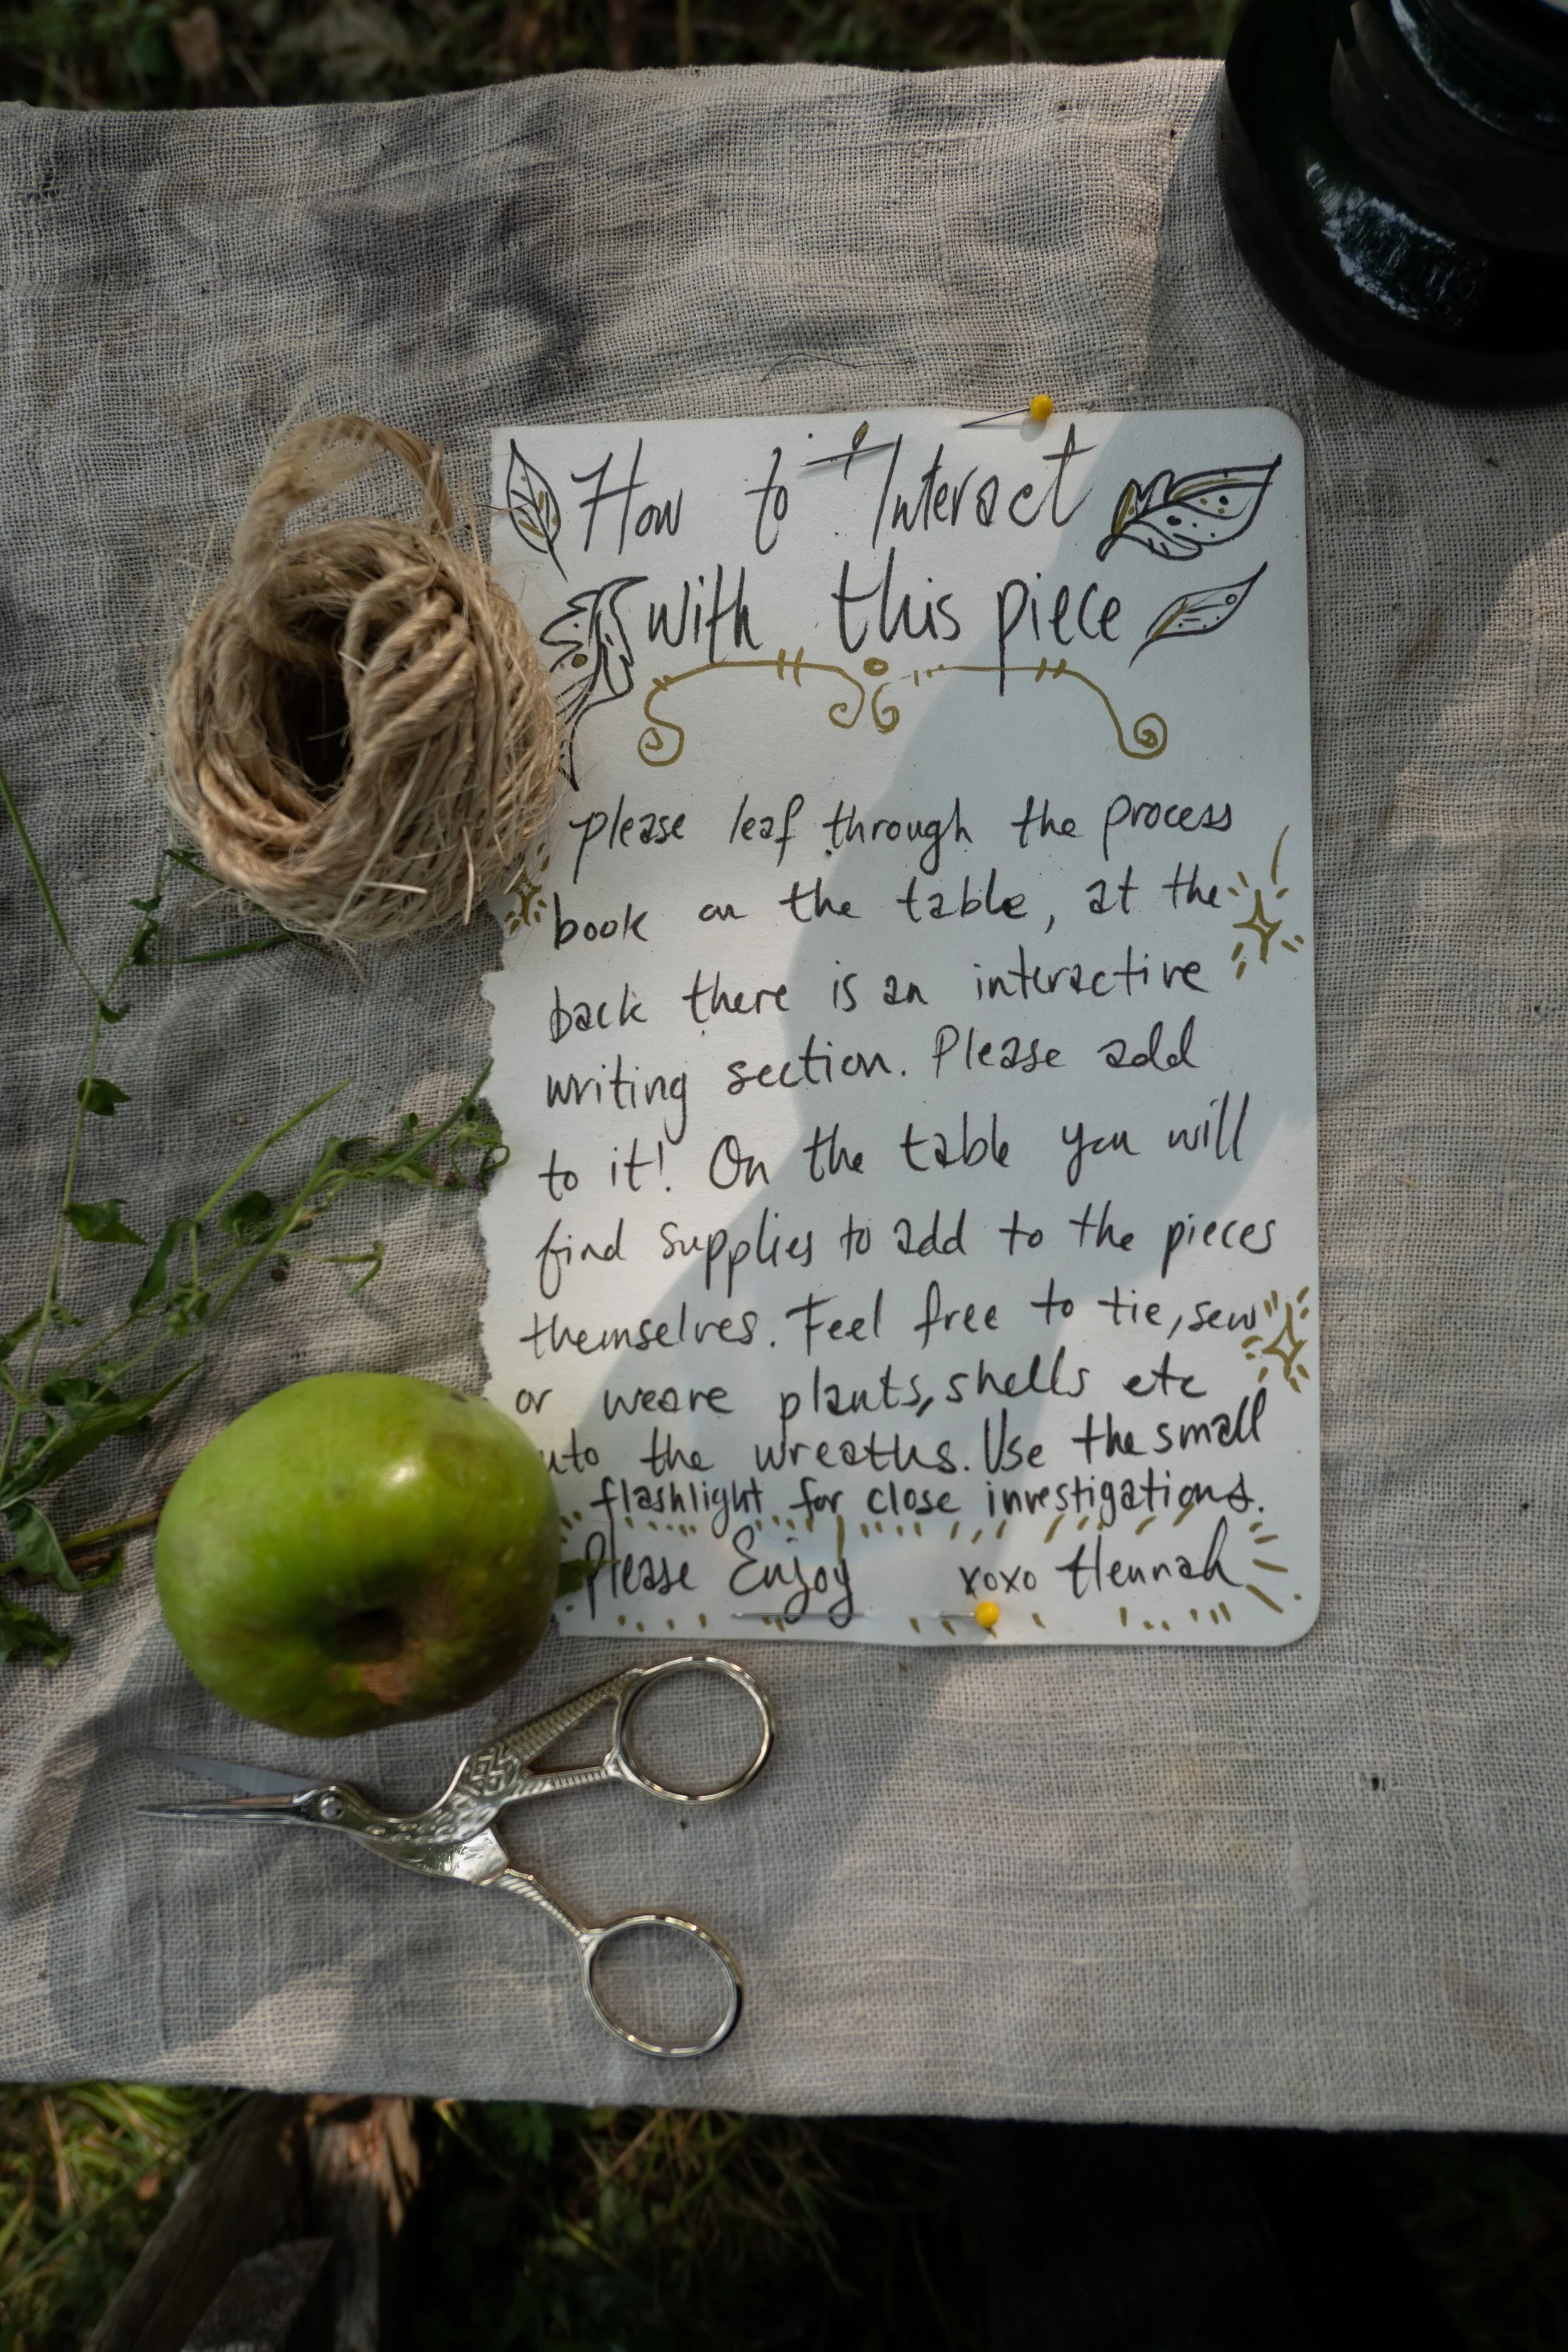 How to Interact
with this piece
please leaf through the process
book on the table, at the
back there is an interactive
writing section. Please add
to it! On the table you will
find supplies to add to the pieces
themselves. Feel free to tie, sew
or weave plants, shells etc
into the wreaths. Use the small
flashlight for close investigations.
Please Enjoy xoxo Hennah